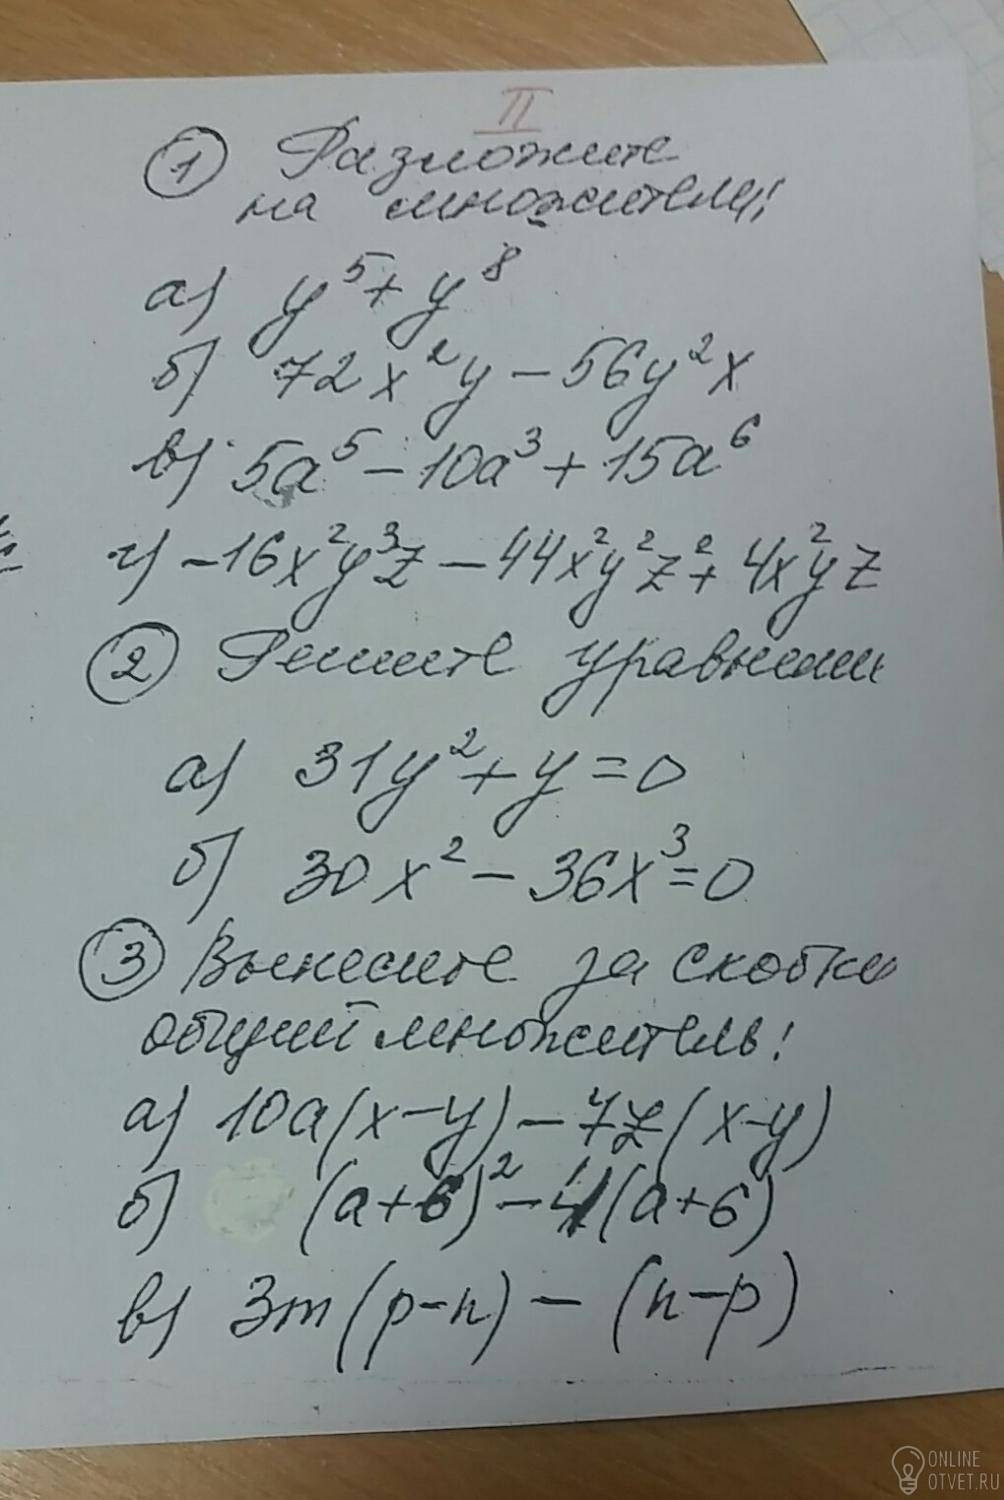 II
① Разложите
на множители:
а) y⁵ + y⁸
б) 72x²y – 56y²x
в) 5a⁵ – 10a³ + 15a⁶
г) –16x²y³z – 44x²y²z² + 4x²yz
② Решите уравнени
а) 31y² + y = 0
б) 30x² – 36x³ = 0
③ Вынесите за скобки
общий множитель:
а) 10a(x – y) – 7z(x – y)
б) (a + 6)² – 4(a + 6)
в) 3m(p – n) – (n – p)
ONLINE
OTVET.RU